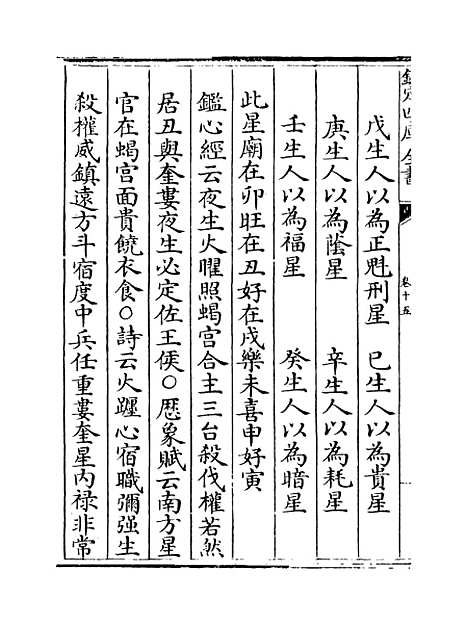 欽定四庫全書
卷十五
戊生人以為正魁刑星　己生人以為貴星
庚生人以為蔭星　辛生人以為耗星
壬生人以為福星　癸生人以為暗星
此星廟在卯旺在丑好在戌樂未喜申好寅
鑑心經云夜生火曜照蝎宫合主三台殺伐權若然
居丑與奎婁夜生必定佐王侯○厯象賦云南方星
官在蝎宫面貴饒衣食○詩云火躔心宿職彌强生
殺權威鎮遠方斗宿度中兵任重婁奎星内禄非常